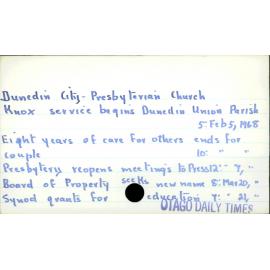 Dunedin City - Presbyterian Church
Knox service begins Dunedin Union Parish
5: Feb 5, 1968
Eight years of care for others ends for
couple 10: " "
Presbytery reopens meetings to Press 12: " 7, "
Board of Property seeks new name 8: Mar 20, "
Synod grants for education 7: " 21, "
OTAGO DAILY TIMES